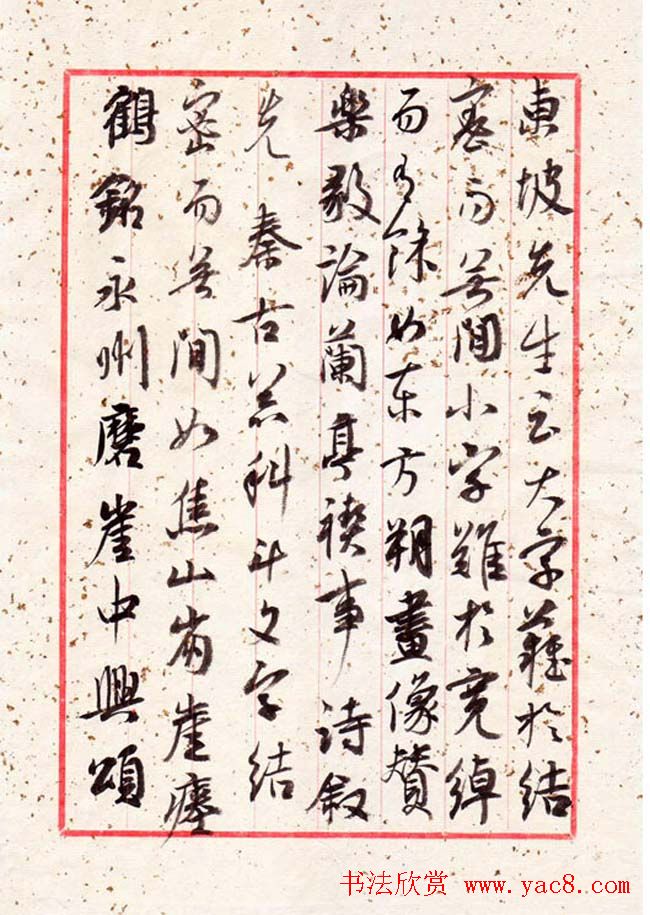 東坡先生云大字難於結
密而无間小字難於寬綽
而有餘如東方朔畫像赞
樂毅論蘭亭禊事詩敘
先秦古器科斗文字結
密而无間如焦山崩崖瘞
鶴銘永州磨崖中興頌
书法欣赏 www.yac8.com